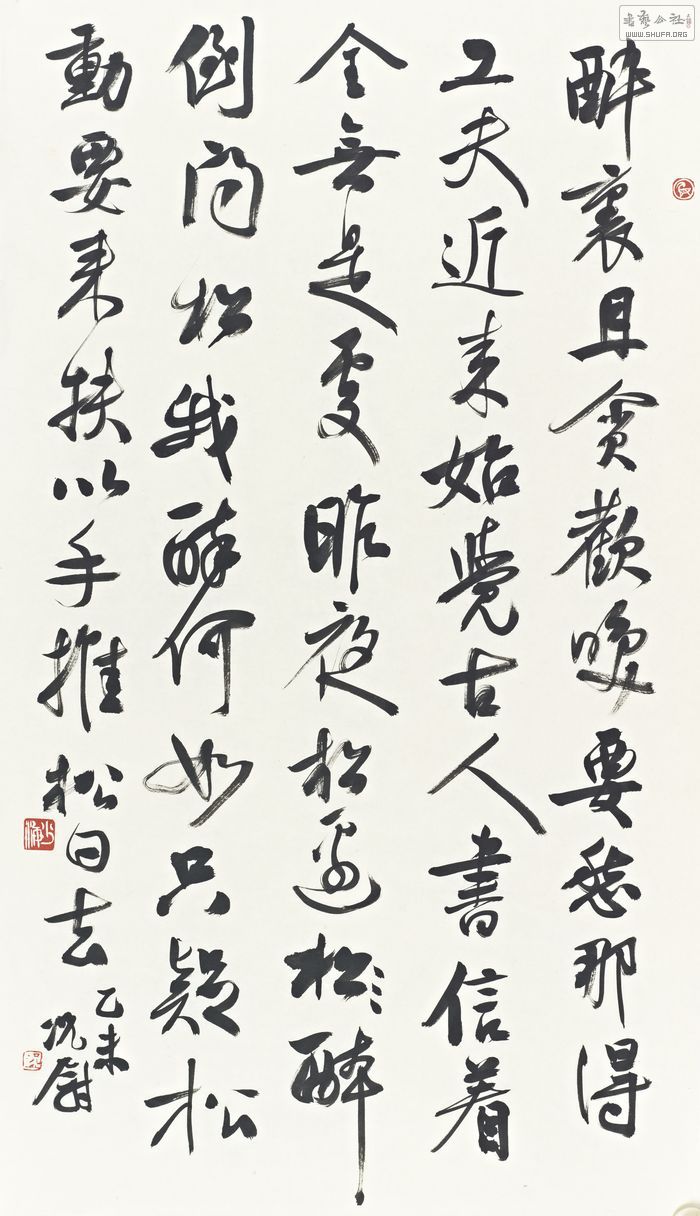 醉裏且貪歡咲要愁那得
工夫近来始覺古人書信着
全無是處昨夜松邊松醉
倒問松我醉何如只疑松
動要来扶以手推松曰去
乙未
書藝公社
WWW.SHUFA.ORG